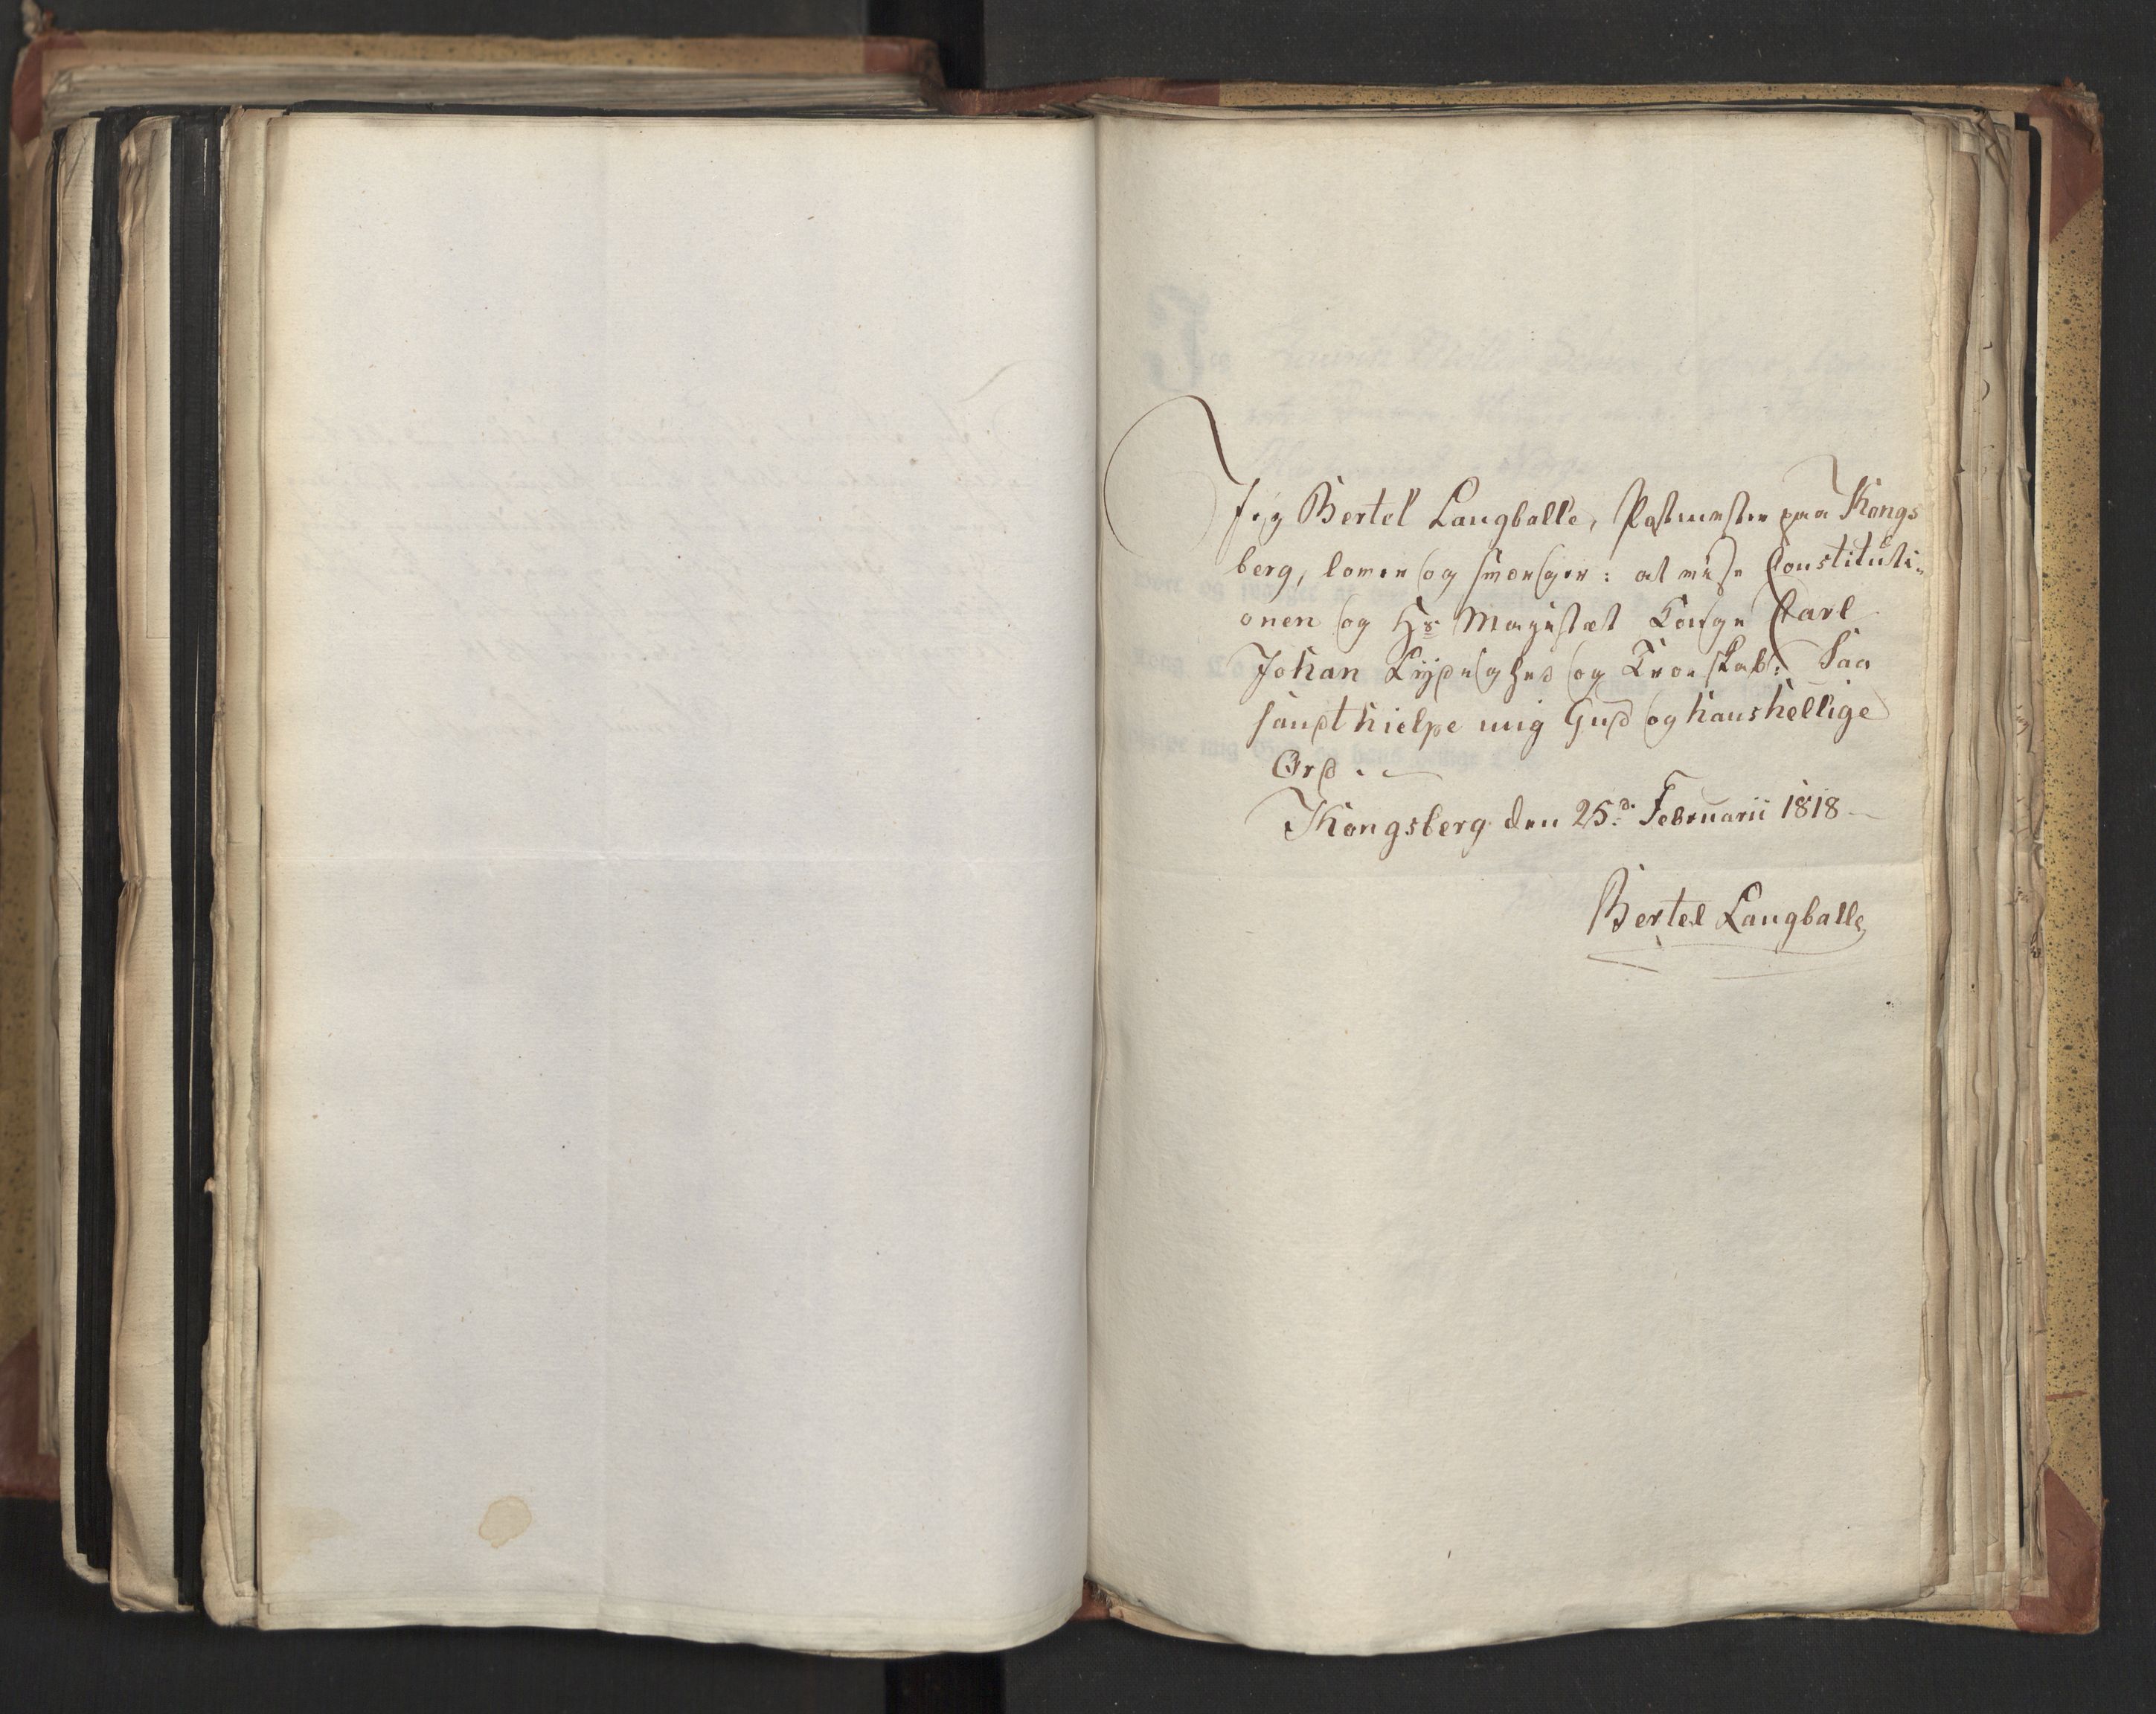 Jeg Bertel Langballe, Postmester paa Kongs
berg, lover og sværger: at vise Constituti-
onen og Hs. Majestæt Konge Carl
Johan Lydighed og Troeskab: Saa
sandt hielpe mig Gud og hans hellige
Ord.
Kongsberg den 25d. Februarii 1818
Bertel Langballe